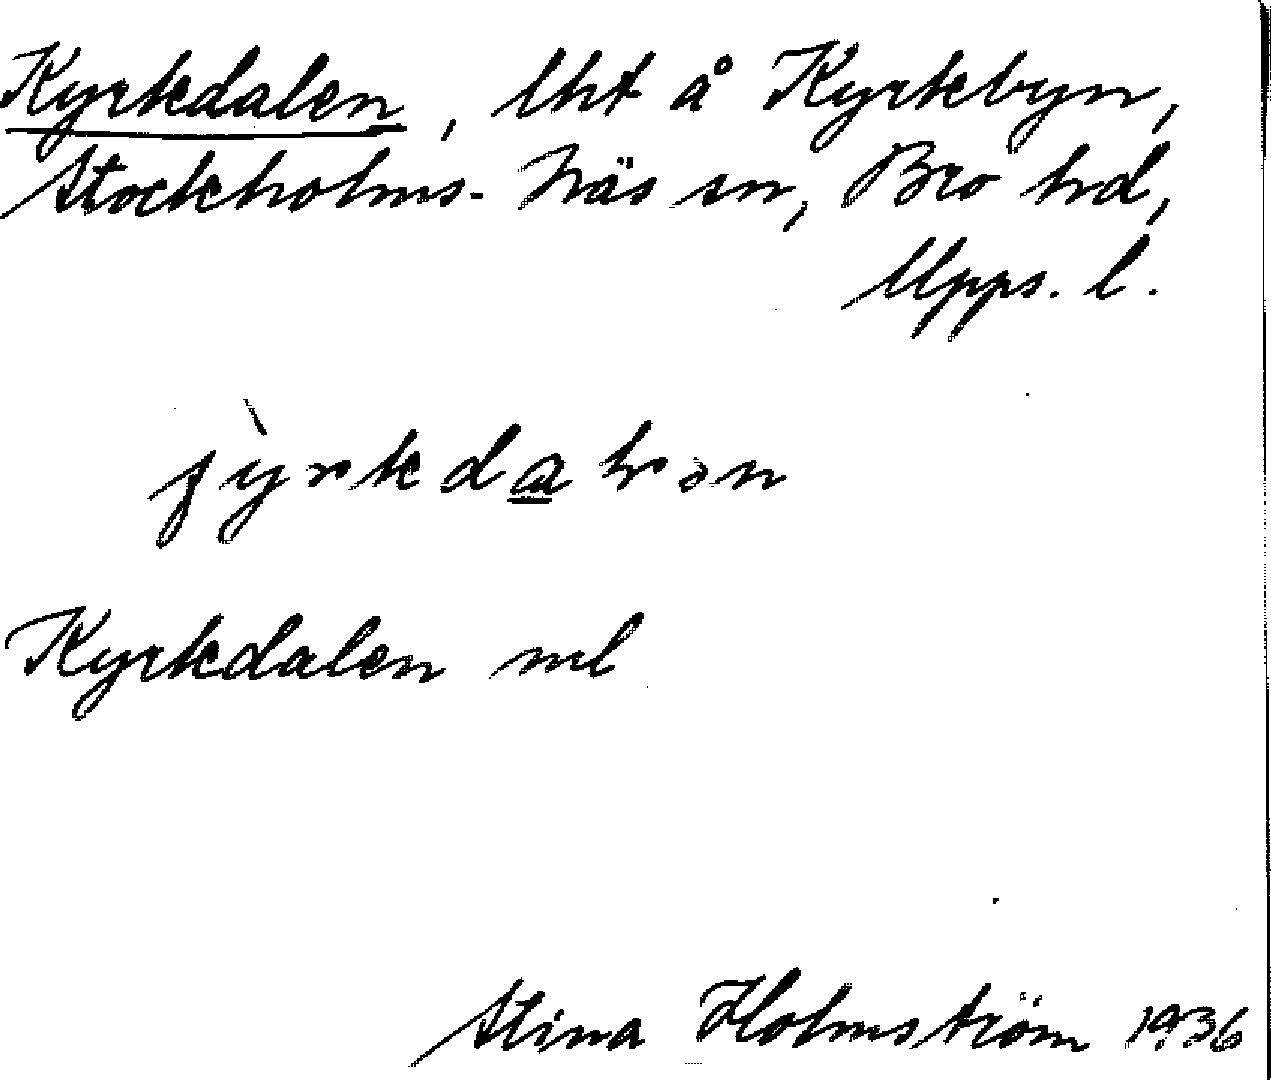 Kyrkdalen, lht å Kyrkbyn,
Stockholms-Näs sn, Bro hd,
Upps. l.
Kyrkdalen ml
Stina Holmström 1936